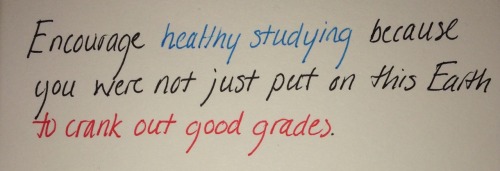 Encourage healthy studying because
you were not just put on this Earth
to crank out good grades.